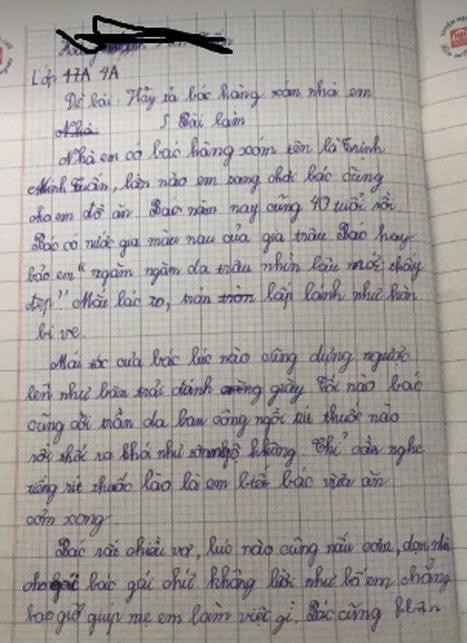 Lớp 17A 4A
Đề bài: Hãy tả bác hàng xóm nhà em
Nhà Bài làm
Nhà em có bác hàng xóm tên là Trịnh
Minh Tuấn, lần nào em sang chơi bác cũng
cho em đồ ăn. Bác năm nay cũng 40 tuổi rồi
Bác có nước gia màu nau của gia trâu Bac hay
bảo em "ngăm ngăm da trâu nhìn lâu mới thấy
đẹp" Mắt bác to, tròn lấp lánh như hòn
bi ve.
Mái tóc của bác lúc nào cũng dựng ngược
lên như bàn trải đánh giày Tối nào bác
cũng cởi trần da ban công ngồi rít thuốc nào
rồi thổi ra khói như khổng Chỉ cần nghe
tiếng rít thuốc lào là em biết bác vừa ăn
cơm xong
Bác rất chiều vợ, lúc nào cũng nấu cơm, dọn nhà
cho bác gái chứ không lười như bố em chẳng
bao giờ giúp mẹ em làm việc gì. Bác cũng